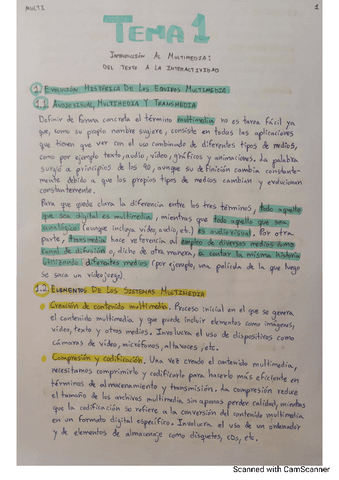 MULTI 1
TEMA 1
INTRODUCCIÓN AL MULTIMEDIA:
DEL TEXTO A LA INTERACTIVIDAD
1 EVOLUCIÓN HISTÓRICA DE LOS EQUIPOS MULTIMEDIA:
1.1 AUDIOVISUAL, MULTIMEDIA Y TRANSMEDIA
Definir de forma concreta el término multimedia no es tarea fácil ya
que, como su propio nombre sugiere, consiste en todas las aplicaciones
que tienen que ver con el uso combinado de diferentes tipos de medios,
como por ejemplo texto, audio, vídeo, gráficos y animaciones. La palabra
surgió a principios de los 90, aunque su definición cambia constante-
mente debido a que los propios tipos de medios cambian y evolucionan
constantemente.
Para que quede clara la diferencia entre los tres términos, todo aquello
que sea digital es multimedia, mientras que todo aquello que sea
analógico (aunque incluya vídeo, audio, etc.) es audiovisual. Por otra
parte, transmedia hace referencia al empleo de diversos medios como
canal de difusión, dicho de otra manera, a contar la misma historia
utilizando diferentes medios (por ejemplo, una película de la que luego
se saca un videojuego).
1.2 ELEMENTOS DE LOS SISTEMAS MULTIMEDIA
Creación de contenido multimedia. Proceso inicial en el que se genera
el contenido multimedia y que puede incluir elementos como imágenes,
vídeo, texto y otros medios. Involucra el uso de dispositivos como
cámaras de vídeo, micrófonos, altavoces, etc.
Compresión y codificación. Una vez creado el contenido multimedia,
necesitamos comprimirlo y codificarlo para hacerlo más eficiente en
términos de almacenamiento y transmisión. La compresión reduce
el tamaño de los archivos multimedia sin apenas perder calidad, mientras
que la codificación se refiere a la conversión del contenido multimedia
en un formato digital específico. Involucra el uso de un ordenador
y de elementos de almacenaje como disquetes, CDs, etc.
Scanned with CamScanner